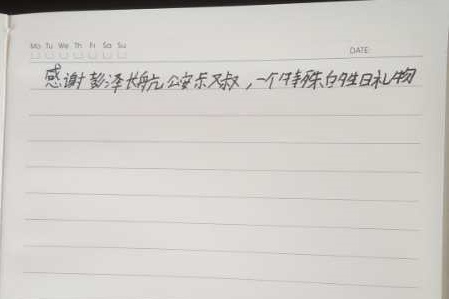 Mo Tu We Th Fr Sa Su
DATE:
感谢彭泽长航公安乐叔叔,一个特殊的生日礼物